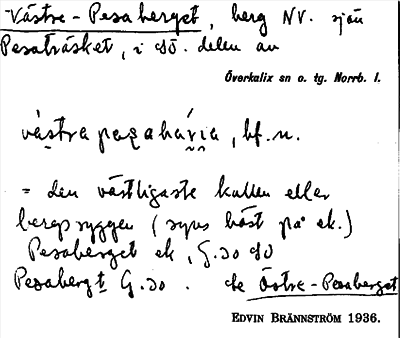 Västre-Pesaberget, berg NV. sjön
Pesaträsket, i sö. delen av
Överkalix sn o. tg. Norrb. l.
västra pesabária, bf. n.
= den västligaste kullen eller
bergsryggen (syns bäst på ek.)
Pesaberget ek, G.30 sö
Pesabergt G.30 . Östre-Pesaberget
EDVIN BRÄNNSTRÖM 1936.